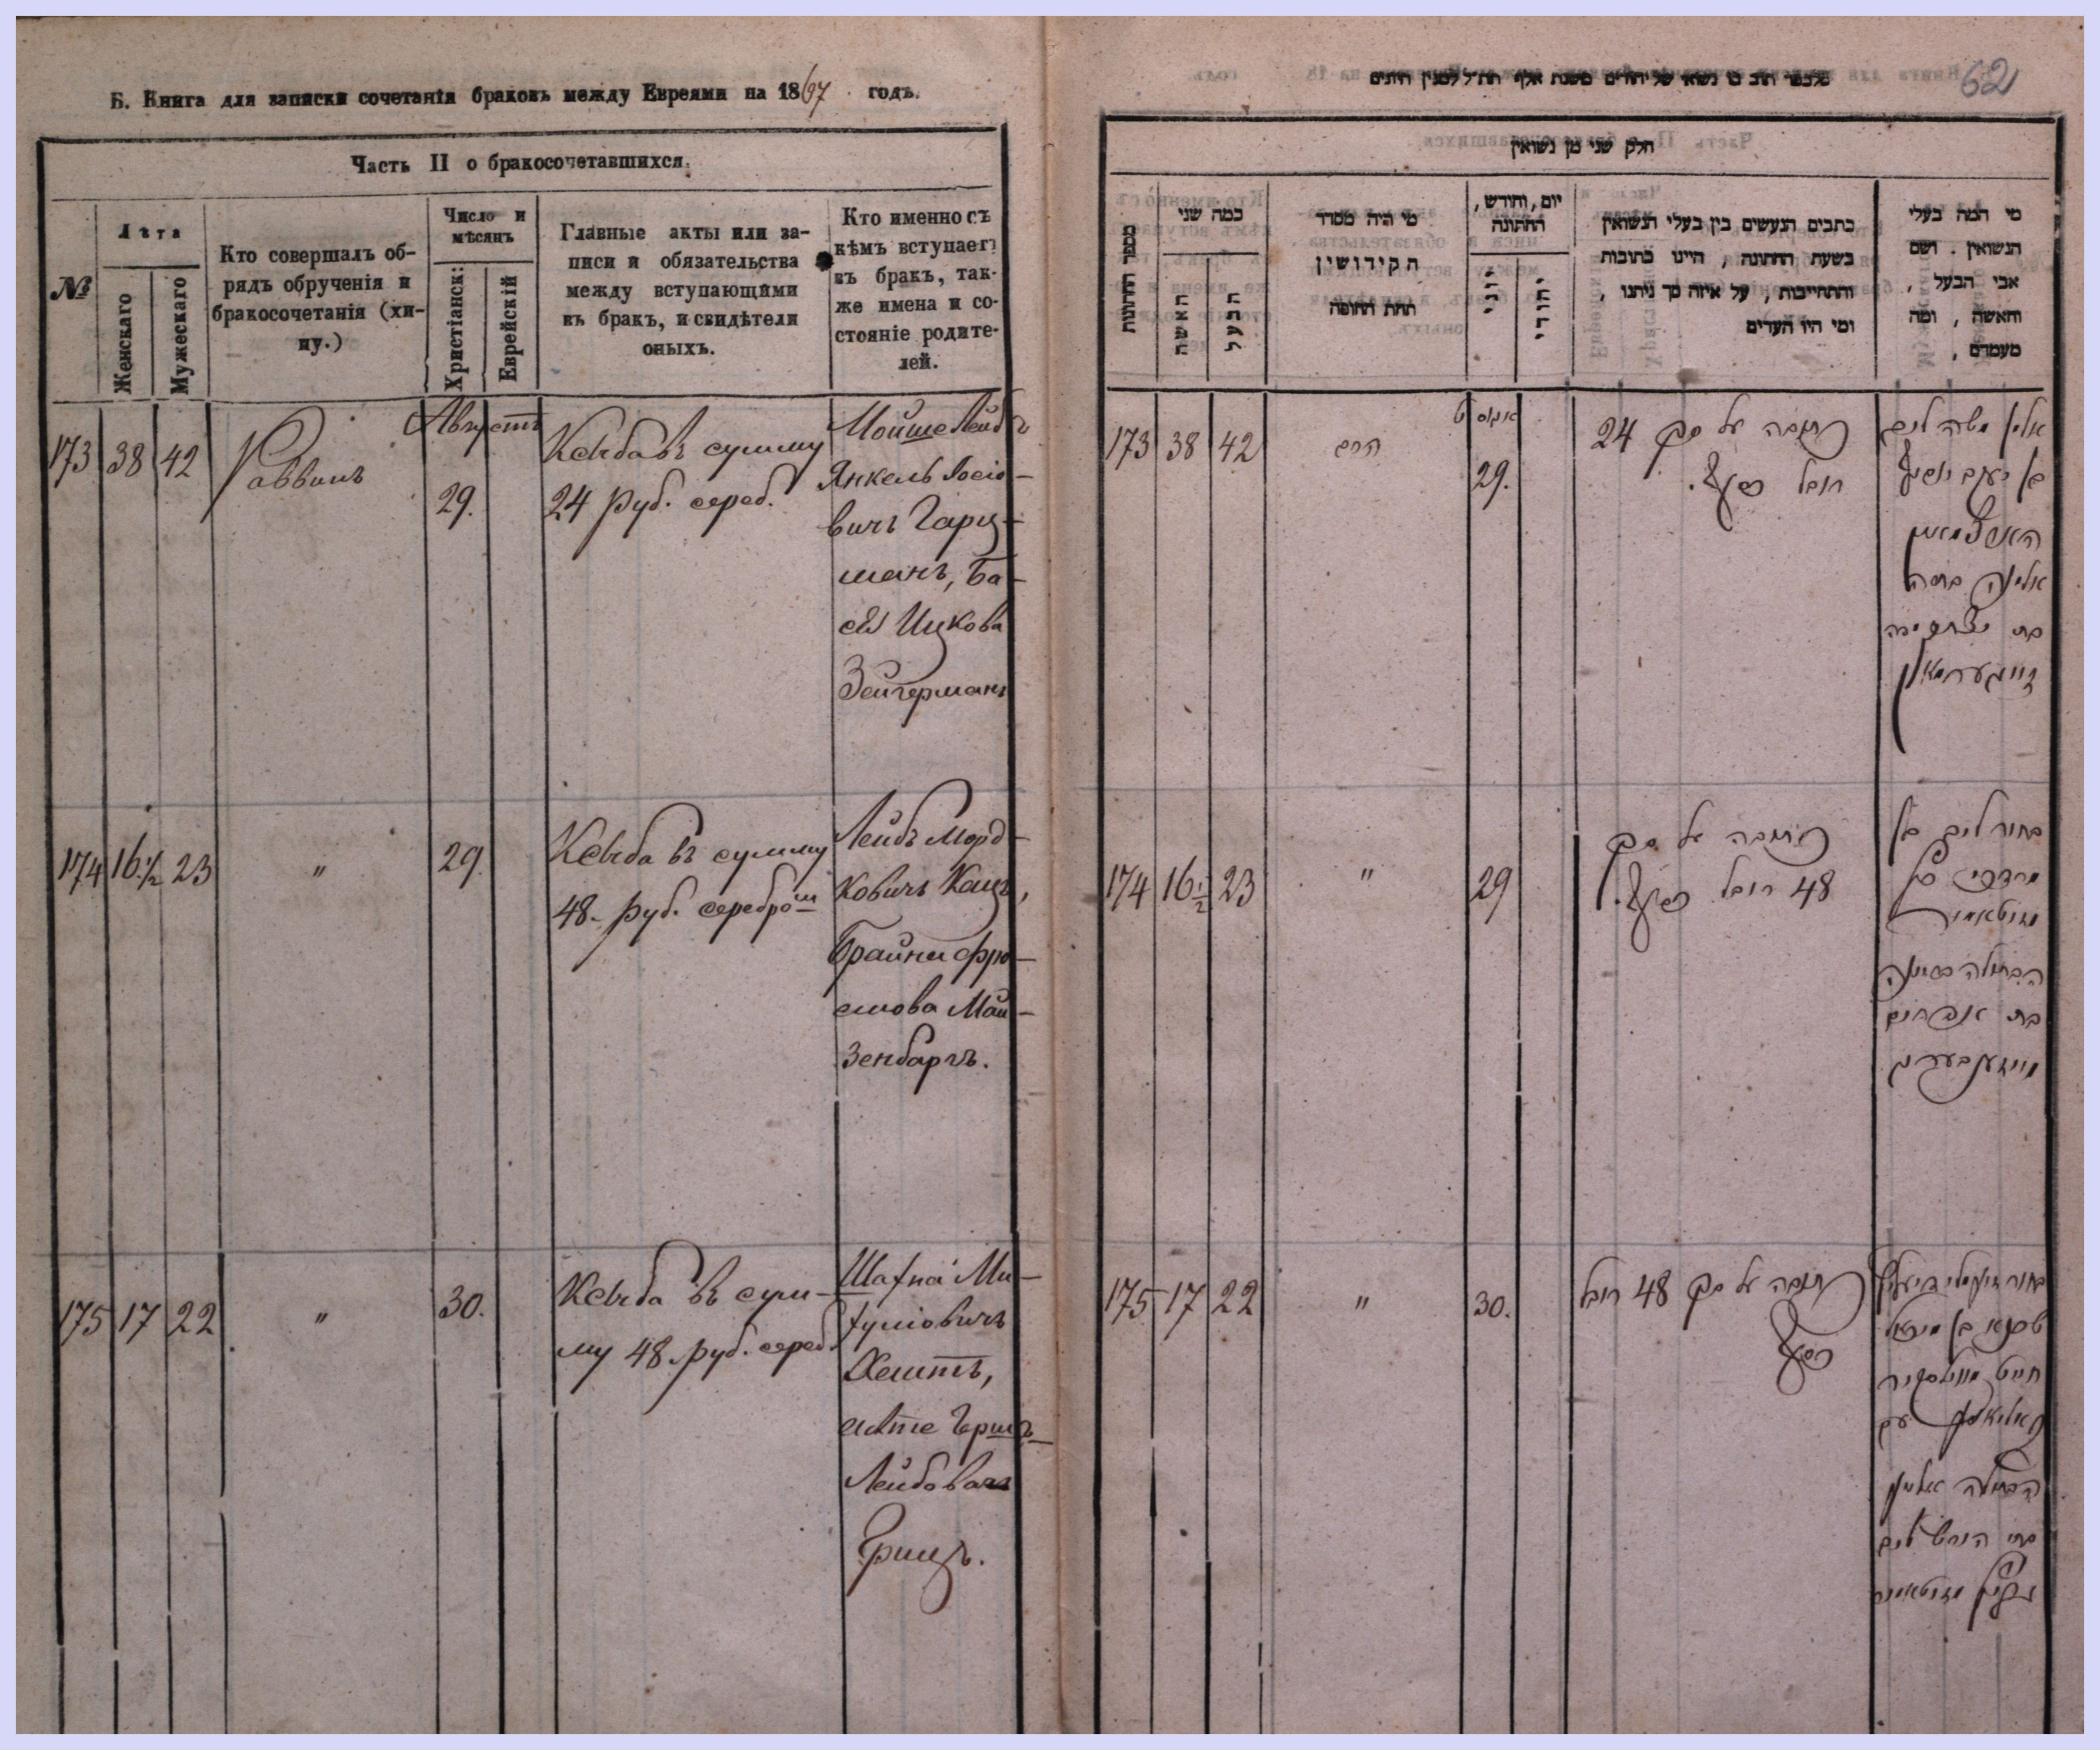 Б. Книга для записки сочетанія браковъ между Евреями на 1867 годъ.
Часть II о бракосочетавшихся.
№
Лѣта
Женскаго
Мужескаго
Кто совершалъ об-
рядъ обрученія и
бракосочетанія (хи-
пу.)
Число и
мѣсяцъ
Христіанск:
Еврейскій
Главные акты или за-
писи и обязательства
между вступающими
въ бракъ, и свидѣтели
оныхъ.
Кто именно съ
кѣмъ вступаетъ
въ бракъ, так-
же имена и со-
стояніе родите-
лей.
173 38 42 Раввинъ
Августъ
29.
Ксыба въ сумму
24 руб. сереб.
Мойше Лейбъ
Янкель Іосіо-
вичъ Гарц-
манъ, Ба-
ся Ицкова
Зейгерманъ
174 16 1/2 23 " 29.
Ксыба въ сумму
48 руб. серебромъ
Лейбъ Морд-
ковичъ Кацъ,
Брайна Фро-
емова Май-
зенбаргъ.
175 17 22 " 30.
Ксыба въ сум-
му 48 руб. сереб.
Шахна Ми-
хуліовичъ
Хаитъ,
Гершъ
Лейбовна
Грицъ.
62
חלק שני מן נשואין
מספר החתונות
כמה שני
האשה
הבעל
מי היה מסדר
הקידושין
תחת החופה
יום, וחודש,
החתונה
יוני
יהודי
כתבים הנעשים בין בעלי הנשואין
בשעת החתונה, היינו כתובות
והתחייבות, על איזה סך ניתנו,
ומי היו העדים
מי המה בעלי
הנשואין. ושם
אבי הבעל,
והאשה, ומה
מעמדם,
173 38 42 הרב
אוגוסט
29.
כתובה על סך 24
רובל כסף.
אלמן משה ליב
בן יעקב יוסף
אלמנה באסה
בת
זייגערמאן
174 16 1/2 23 " 29
כתובה על סך
48 רובל כסף.
בחור ליב בן
מרדכי כץ
זיטאמיר
הבתולה בריינה
בת אפרים
מייזענבערג
175 17 22 " 30.
כתובה על סך 48 רובל
כסף
שכנא בן מיכאל
חייט
עם
הבתולה
בת הירש ליב